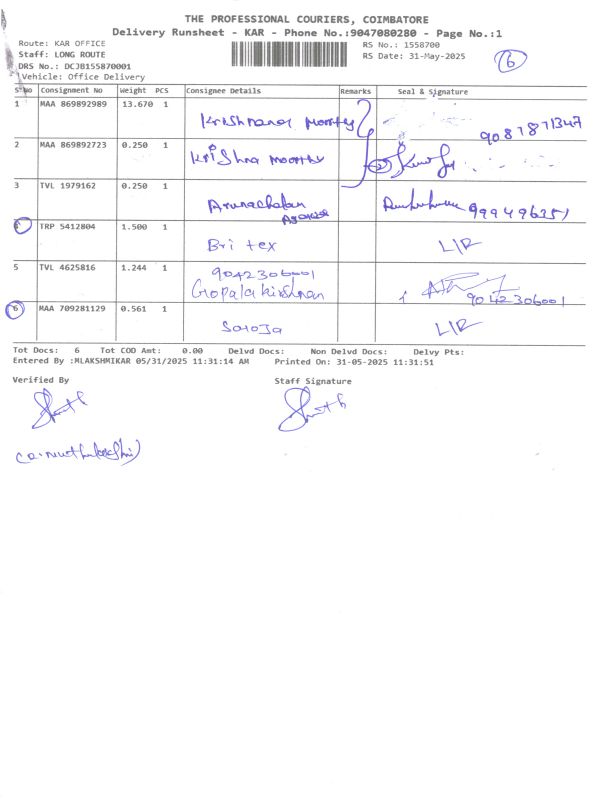 THE PROFESSIONAL COURIERS, COIMBATORE
Delivery Runsheet - KAR - Phone No.:9047080280 - Page No.:1
Route: KAR OFFICE RS No.: 1558700 6
Staff: LONG ROUTE RS Date: 31-May-2025
DRS No.: DCJB155870001
Vehicle: Office Delivery
S No Consignment No Weight PCS Consignee Details Remarks Seal & Signature
1 MAA 869892989 13.670 1
Krishnan Moorthy 9087871347
2 MAA 869892723 0.250 1 Krishna moorthy 2
3 TVL 1979162 0.250 1
Arunachalam
4 TRP 5412804 1.500 1
Bri tex L/R
5 TVL 4625816 1.244 1 9042306001
Gopalakrishnan 9042306001
6 MAA 709281129 0.561 1
Saroja L/R
Tot Docs: 6 Tot COD Amt: 0.00 Delvd Docs: Non Delvd Docs: Delvy Pts:
Entered By :MLAKSHMIKAR 05/31/2025 11:31:14 AM Printed On: 31-05-2025 11:31:51
Verified By Staff Signature